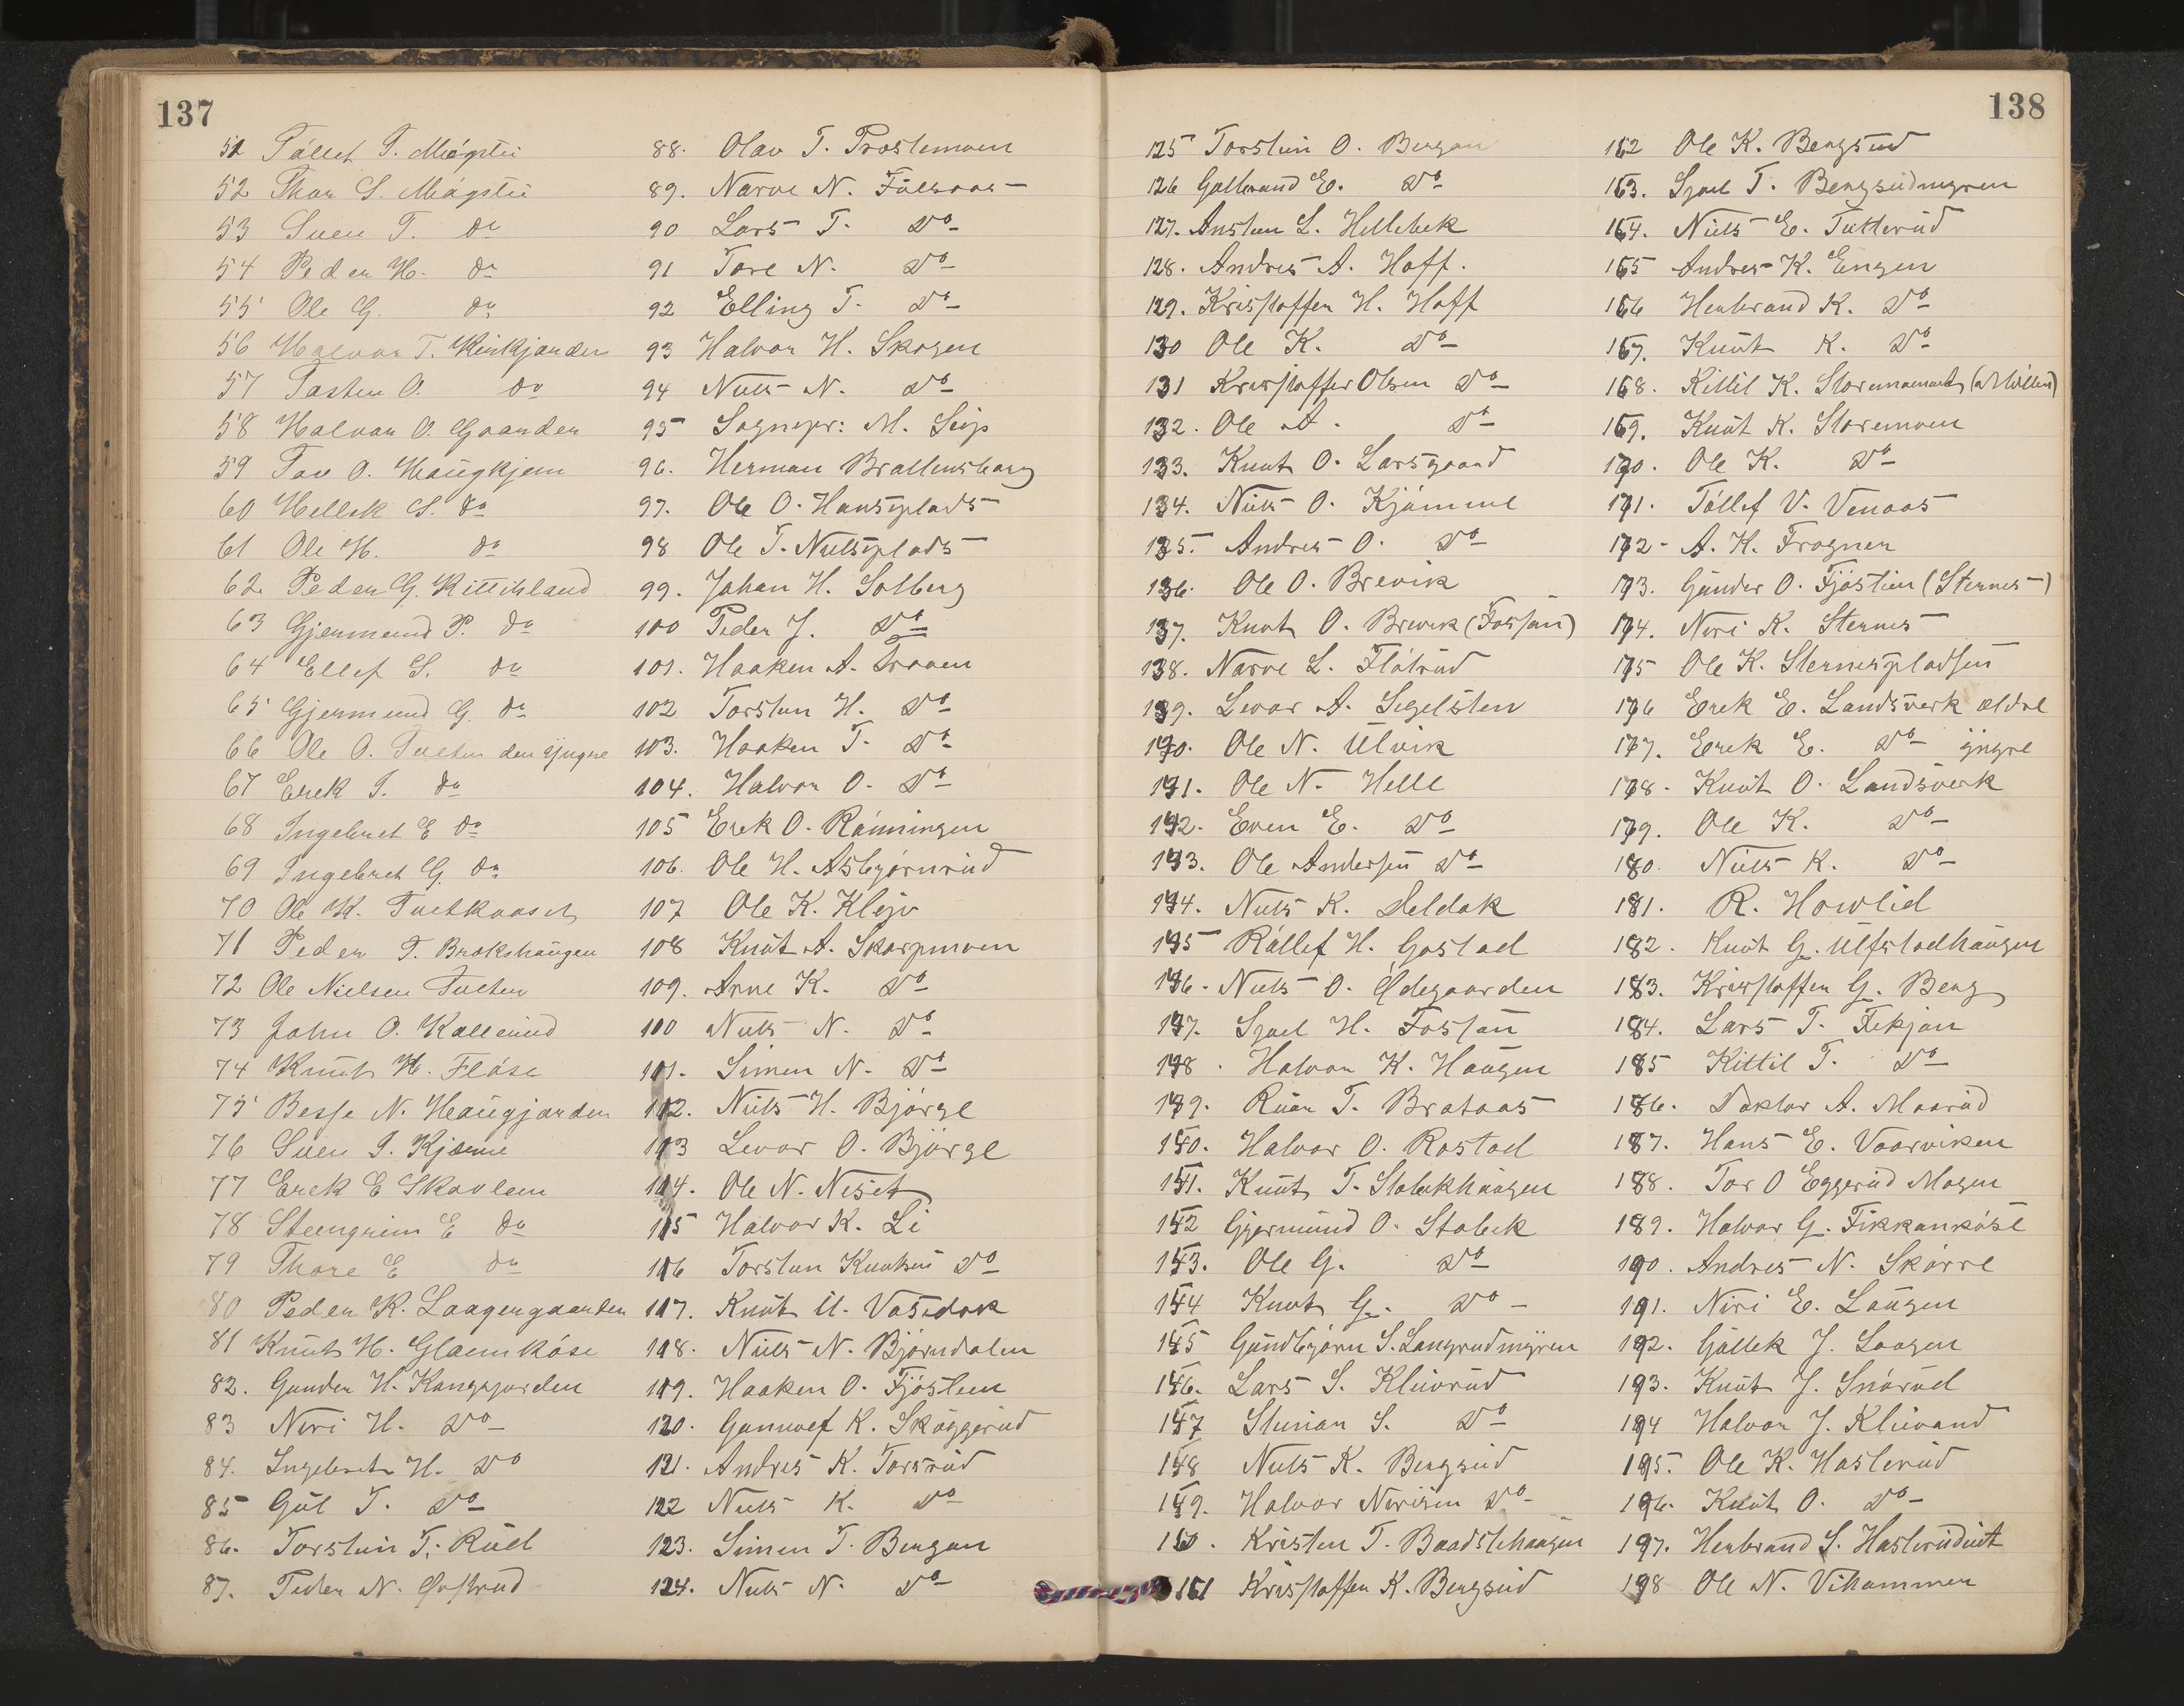 137
51 Tóllef T. Mógstii
52 Thor S. Mógstii
53 Sven T. do
54 Peder H. do
55 Ole G. do
56 Halvor T. Kirkjorden
57 Tosten O. do
58 Halvor O. Goarden
59 Tov O. Haugkjem
60 Hellek S. do
61 Ole H. do
62. Peder G. Kittilsland
63 Gjermund P. do
64 Ellef S. do
65 Gjermund G. do
66 Ole O. Tveten den yngre
67 Erek T. do
68 Ingebret E do
69 Ingebret G. do
70 Ole K. Tvetkaaset
71 Peder T. Brokshaugen
72 Ole Nielsen Tveten
73 John O. Kallerud
74 Knut H. Flóse
75 Besse N. Haugjorden
76 Sven T. Kjome
77 Erek E Skavlem
78 Steengrim E do
79 Thore E do
80 Peder K. Laagengaarden
81 Knut H. Glaimkóse
82. Gunder H. Kongsjorden
83 Niri H. Do
84. Ingebret H. Do
85 Gul T. Do
86. Torstein T. Rud
87. Peder N. Ørstrud
88. Olav T. Prostemoen
89. Narve N. Fulsaas
90 Lars T. Do
91 Tore N. Do
92 Elling T. Do
93 Halvor H. Skogen
94 Niels N. Do
95 Sognepr: M. Seip
96. Herman Brallensberg
97. Ole O. Hansplads
98 Ole T. Nielsplads
99. Johan H. Solberg
100 Peder J. Do
101. Haaken A. Traaen
102 Torsten H. Do
103. Haaken T. Do
104. Halvor O. Do
105 Erek O. Rónningen
106. Ole H. Asbjórnrud
107 Ole K. Klejv
108 Knut A. Skarpmoen
109. Arne K. Do
110 Niels N. Do
111. Simen N. Do
112. Niels H. Bjórge
113 Levor O. Bjórge
114. Ole N. Neset
115 Halvor K. Li
116 Torsten Knutsen Do
117. Knut U. Vasedok
118. Niels N. Bjórndalen
119. Haaken O. Fjósteen
120. Gunnolf K. Skoggerud
121. Andres K. Torsrud
122 Niels K. Do
123. Simen T. Bergan
124. Niels N. Do
138
125 Torstein O. Bergan
126 Gulbrand E. Do
127. Ansten L. Hellebek
128. Andres A. Hoff.
129. Kristoffer H. Hoff
130 Ole K. Do
131 Kristoffer Olsen Do
132. Ole A. Do
133. Knut O. Larsgaard
134. Niels O. Kjómme
135. Andres O. Do
136. Ole O. Brevik
137. Knut O. Brevik (Fossan)
138. Narve L. Flótrud
139. Levor A. Segelsten
140. Ole N. Ulvik
141. Ole N. Helle
142. Even E. Do
143. Ole Andersen Do
144. Niels K. Seldok
145 Róllef H. Gostad
146. Niels O. Ødegaarden
147. Sjul H. Fossan
148. Halvor K. Haugen
149. Ruar T. Brataas
150. Halvor O. Rostad
151. Knut T. Stabekhaugen
152 Gjermund O. Stabek
153. Ole G. Do
154 Knut G. Do
155 Gundbjórn S. Langrudmyren
156. Lars S. Kleivrud
157 Steinar S. Do
158 Niels K. Bergsrud
159. Halvor Nirisen Do
160. Kristen T. Baadstehaugen
161 Kristoffer K. Bergsrud
162 Ole K. Bergsrud
163. Sjul T. Bergsrudmyren
164. Niels E. Tutterud
165 Andres K. Engen
166 Herbrand K. Do
167. Knut K. Do
168. Kittil K. Storemoen (Móllen)
169. Knut K. Storemoen
170. Ole K. Do
171. Tóllef V. Venaas
172 A. H. Frogner
173. Gunder O. Fjósteen (Sternes)
174. Niri K. Sternes
175 Ole K. Sternespladsen
176 Erek E. Landsverk ældre
177. Erek E. Do yngre
178. Knut O. Landsverk
179. Ole K. Do
180. Niels K. Do
181. R. Howlid
182. Knut G. Ulfstadhaugen
183. Kristoffer G. Berg
184. Lars T. Tekjan
185 Kittil T. Do
186. Doktor A. Maarud
187. Hans E. Vaarviken
188. Tor O Eggerud Mogen
189. Halvor G. Fikkankóse
190. Andres N. Skórre
191. Niri E. Laugen
192. Góllek J. Laagen
193. Knut J. Snórud
194 Halvor J. Kleivand
195. Ole K. Haslerud
196. Knut O. Do
197. Herbrand S. Haslerudeiet
198 Ole N. Vihammer